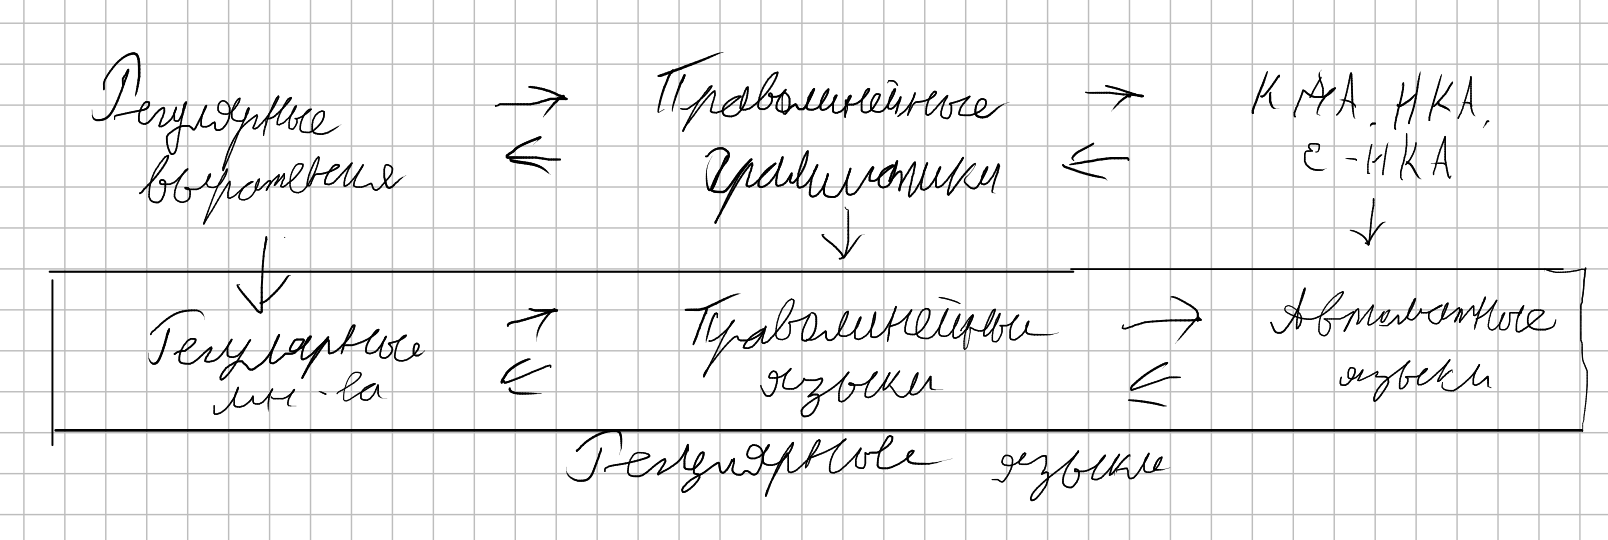 Регулярные
выражения
Праволинейные
грамматики
КДА, НКА,
ε-НКА
Регулярные
мн-ва
Праволинейные
языки
Автоматные
языки
Регулярные языки